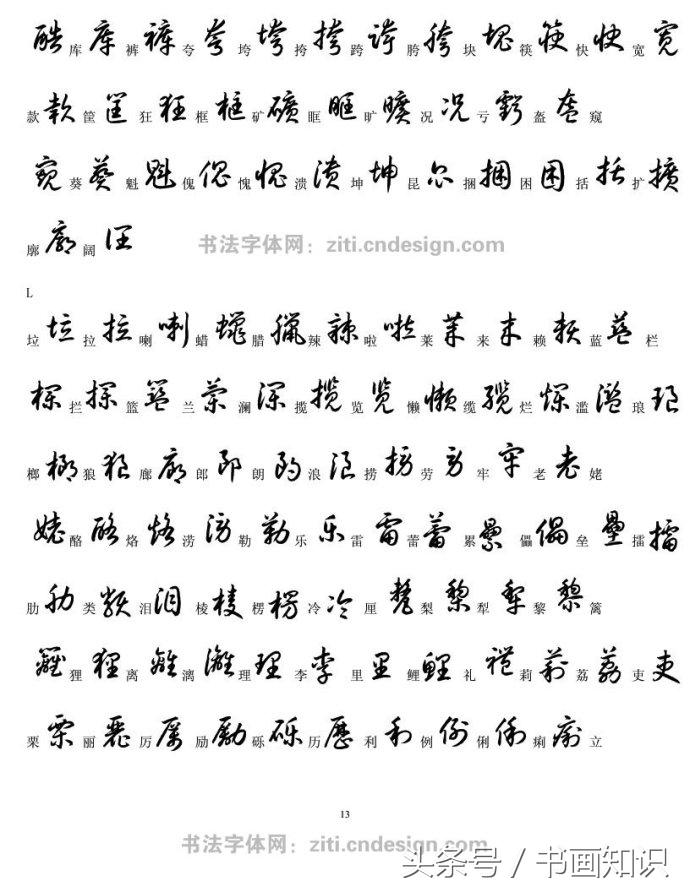 酷 库 库 裤 裤 夸 夸 垮 垮 挎 挎 跨 跨 胯 胯 块 塊 筷 筷 快 快 宽 宽
款 款 筐 筐 狂 狂 框 框 矿 礦 眶 眶 旷 曠 况 况 亏 虧 盔 盔 窥
窥 葵 葵 魁 魁 傀 傀 愧 愧 溃 溃 坤 坤 昆 昆 捆 捆 困 困 括 括 扩 擴
廓 廓 阔 阔 书法字体网：ziti.cndesign.com
L
垃 垃 拉 拉 喇 喇 蜡 蠟 腊 臘 辣 辣 啦 啦 莱 莱 来 来 赖 赖 蓝 蓝 栏
栏 拦 拦 篮 篮 兰 兰 澜 澜 揽 揽 览 览 懒 懒 缆 缆 烂 烂 滥 滥 琅 琅
榔 榔 狼 狼 廊 廊 郎 郎 朗 朗 浪 浪 捞 捞 劳 劳 牢 牢 老 老 姥
姥 酪 酪 烙 烙 涝 涝 勒 勒 乐 乐 雷 雷 蕾 蕾 累 纍 儡 儡 垒 壘 擂 擂
肋 肋 类 类 泪 泪 棱 棱 楞 楞 冷 冷 厘 厘 梨 梨 犁 犁 黎 黎 篱
篱 狸 狸 离 離 漓 漓 理 理 李 李 里 里 鲤 鲤 礼 礼 莉 莉 荔 荔 吏 吏
栗 栗 丽 丽 厉 厉 励 励 砾 砾 历 历 利 利 例 例 俐 俐 痢 痢 立
13
书法字体网：ziti.cndesign.com
头条号 / 书画知识